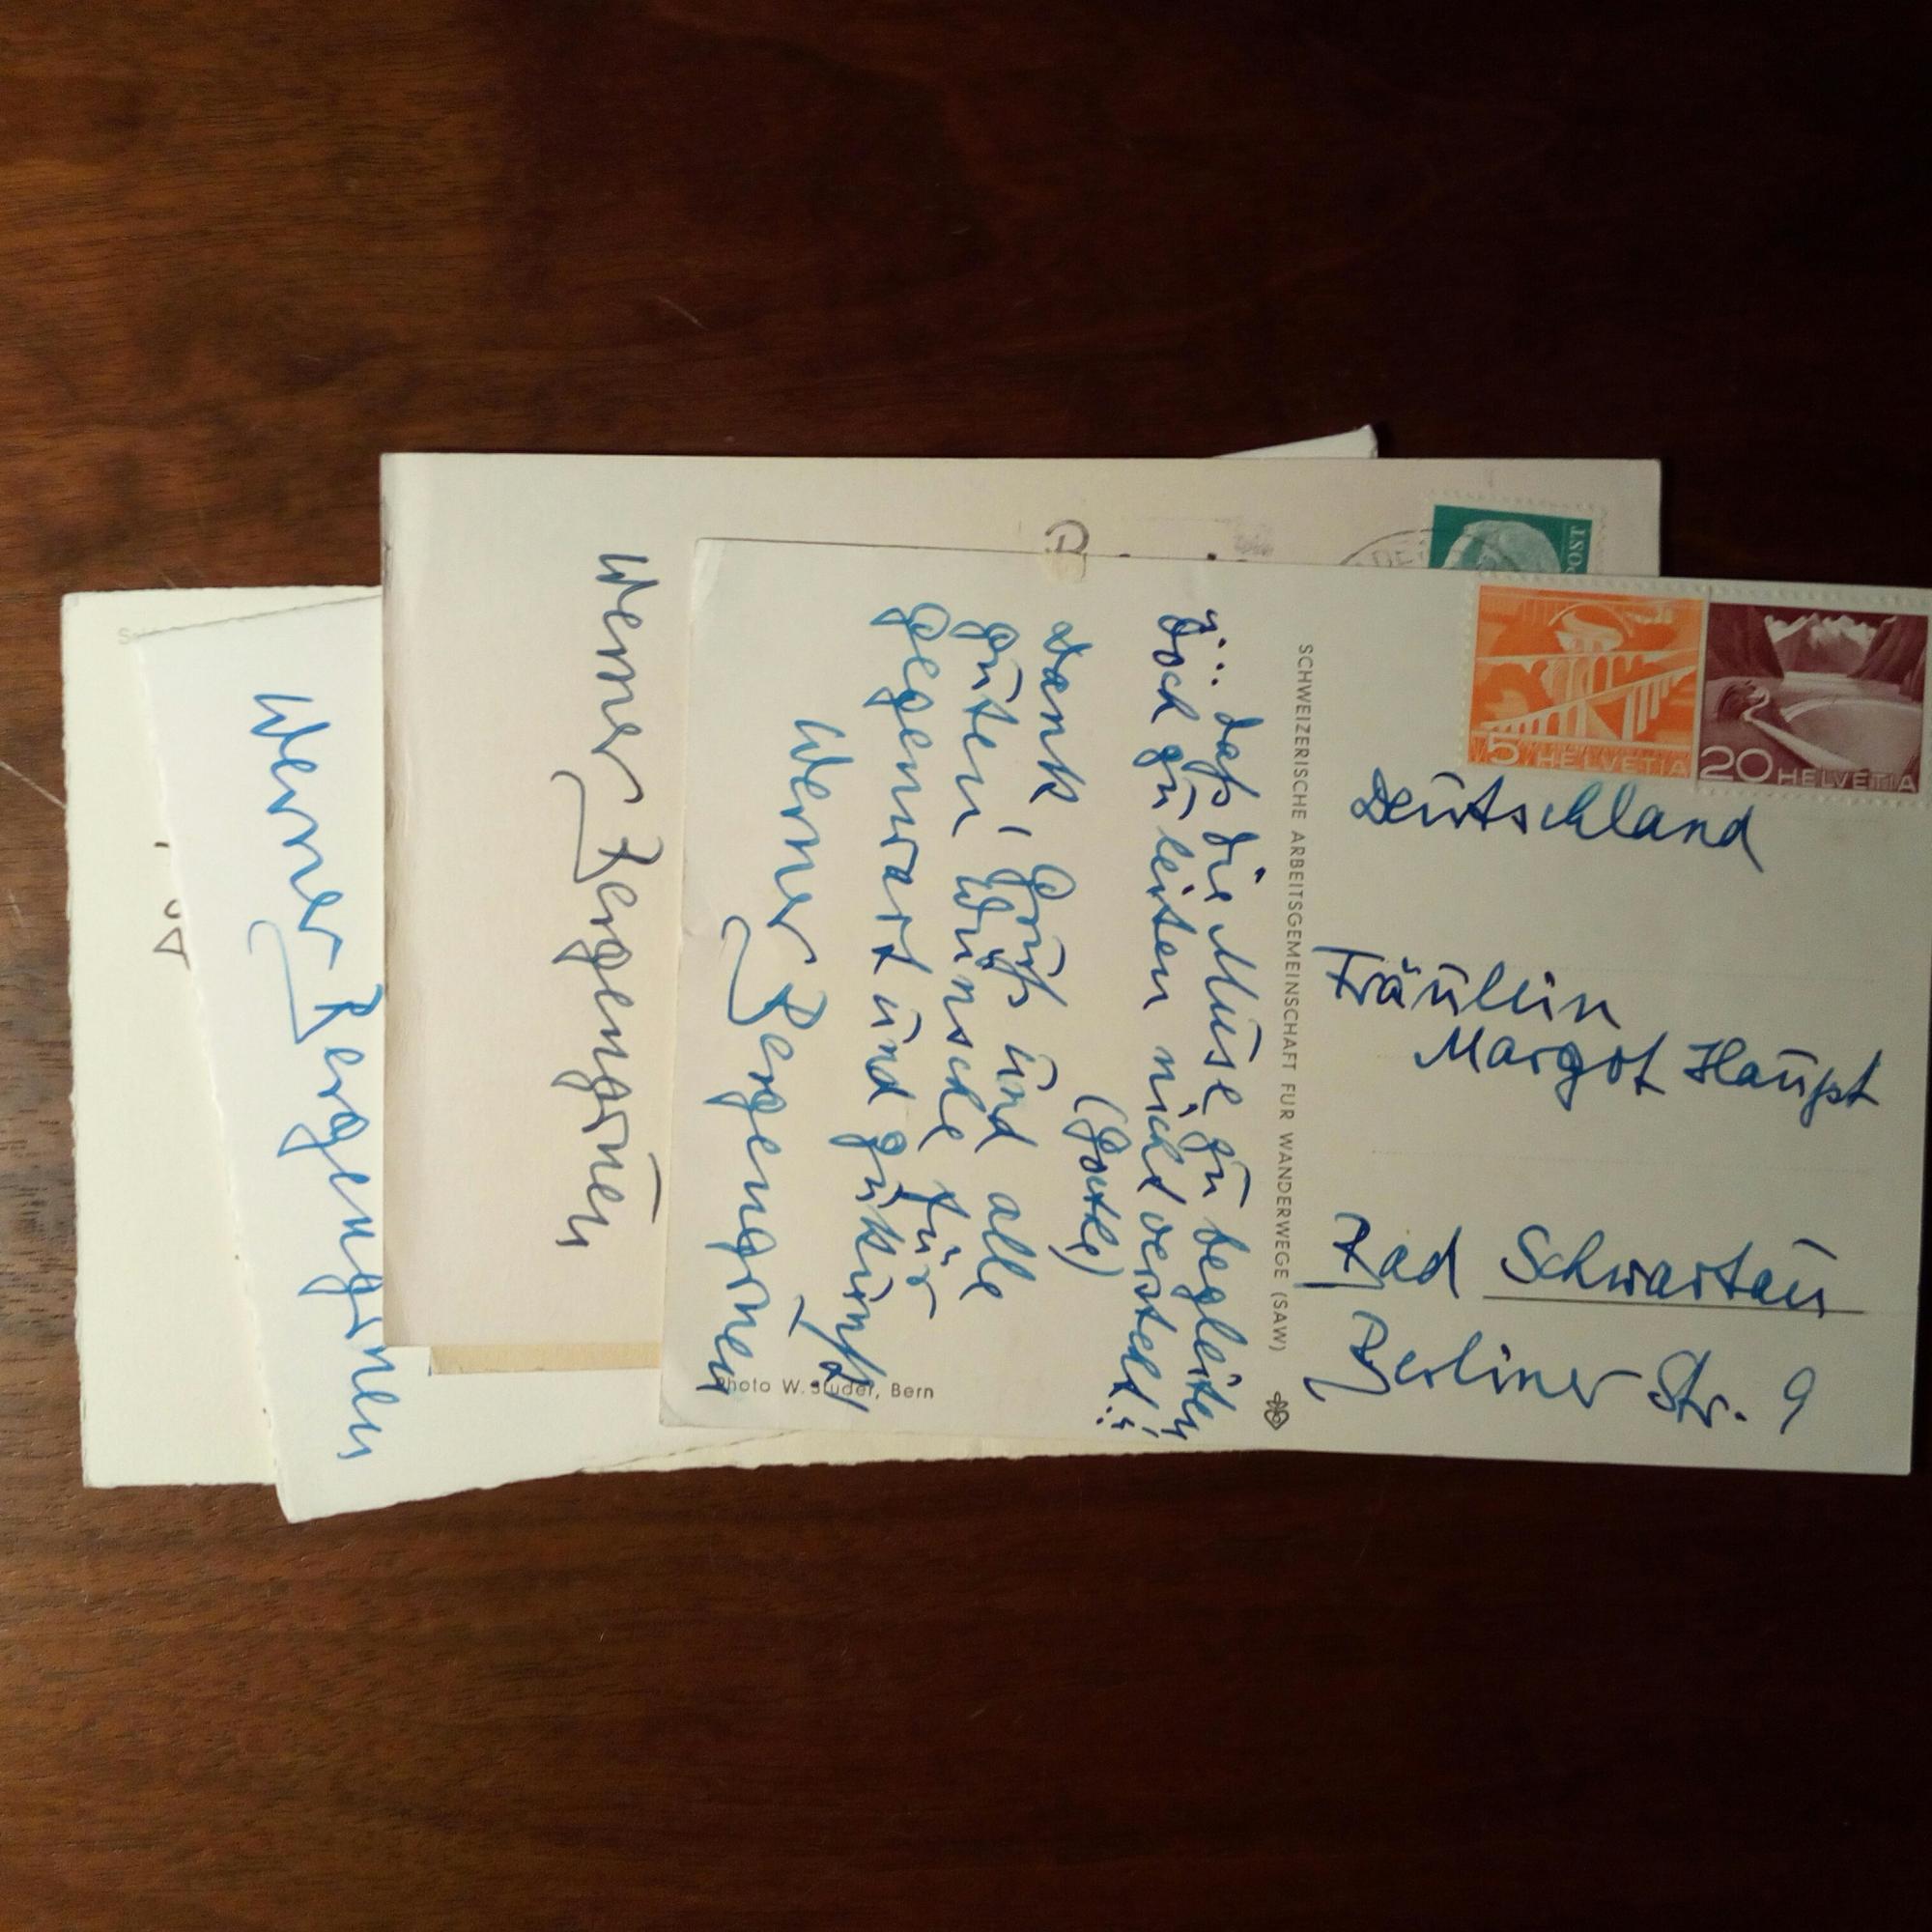 5 HELVETIA
20 HELVETIA
POST
Deutschland
Fräulein
Margot Haupt
Bad Schwartau
Berliner Str. 9
SCHWEIZERISCHE ARBEITSGEMEINSCHAFT FÜR WANDERWEGE (SAW)
"... daß die Muse zu begleiten
Doch zu leiten nicht versteht."
(Goethe)
Dank, Gruß und alle
guten Wünsche für
Gegenwart und Zukunft
Werner Bergengruen
Photo W. Studer, Bern
Werner Bergengruen
Werner Bergengruen